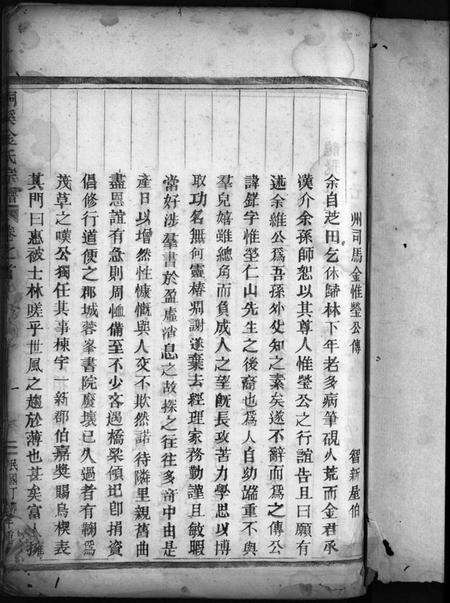 州司馬金惟瑩公傳
智新產伯
余自芝田乞休歸林下年老多病筆硯久荒而金君承
漢介余孫師恕以其尊人惟瑩公之行誼告且曰願有
述余維公爲吾孫外处知之素矣遂不辭而爲之傳公
諱鋅字惟瑩仁山先生之後裔也爲人自幼端重不與
羣兒嬉雖總角而負成人之望旣長攻苦力學思以博
取功名無何靈椿凋謝遂棄去經理家務勤謹且敏暇
當好涉羣書於盈虛消息之故探之往往多奇中由是
產日以增然性慷慨與人交不欺然諾待隣里親舊曲
盡恩誼有急則周恤備至不少客遇橋梁傾圮卽捐資
倡修行道便之郡城蓉峯書院廢壞已久過者有鞠爲
茂草之嘆公獨任其事棟宇一新郡伯嘉奬賜烏楔表
其門曰惠被士林嗟乎世風之趨於薄也甚矣富人擁
金氏宗譜 卷之首
一
民國丁